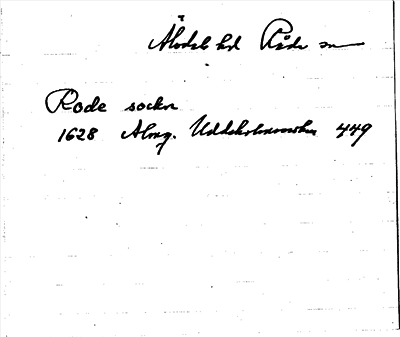 Älvdals hd Råda sn
Rode sockn
1628 Älvsg. Uddeholmsverken 449